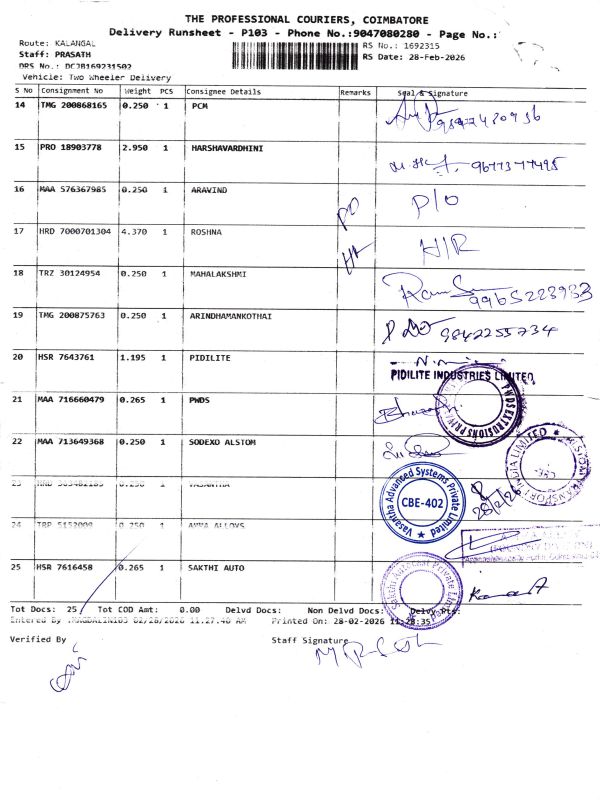 THE PROFESSIONAL COURIERS, COIMBATORE
Delivery Runsheet - P103 - Phone No.:9047080280 - Page No.:
Route: KALANGAL
RS No.: 1692315
Staff: PRASATH
RS Date: 28-Feb-2026
DRS No.: DCJB169231502
Vehicle: Two Wheeler Delivery
S No Consignment No Weight PCS Consignee Details Remarks Seal & Signature
14 TMG 200868165 0.250 1 PCM
15 PRO 18903778 2.950 1 HARSHAVARDHINI 9677377495
16 MAA 576367985 0.250 1 ARAVIND PD P/O
17 HRD 7000701304 4.370 1 ROSHNA H/R
18 TRZ 30124954 0.250 1 MAHALAKSHMI 9965223933
19 TMG 200875763 0.250 1 ARINDHAMANKOTHAI 9842255734
20 HSR 7643761 1.195 1 PIDILITE
PIDILITE INDUSTRIES LIMITED
21 MAA 716660479 0.265 1 PWDS
22 MAA 713649368 0.250 1 SODEXO ALSTOM
23 0.250 1 VASANTHA
Vasantha Advanced Systems Private Limited
CBE-402
28/2/26
24 TRP 5152009 0.250 1 AMMA ALLOYS
25 HSR 7616458 0.265 1 SAKTHI AUTO
Tot Docs: 25 Tot COD Amt: 0.00 Delvd Docs: Non Delvd Docs: Delvy Pts:
Entered By :MAGDALIN103 02/28/2026 11:27:40 AM Printed On: 28-02-2026 11:28:35
Verified By
Staff Signature